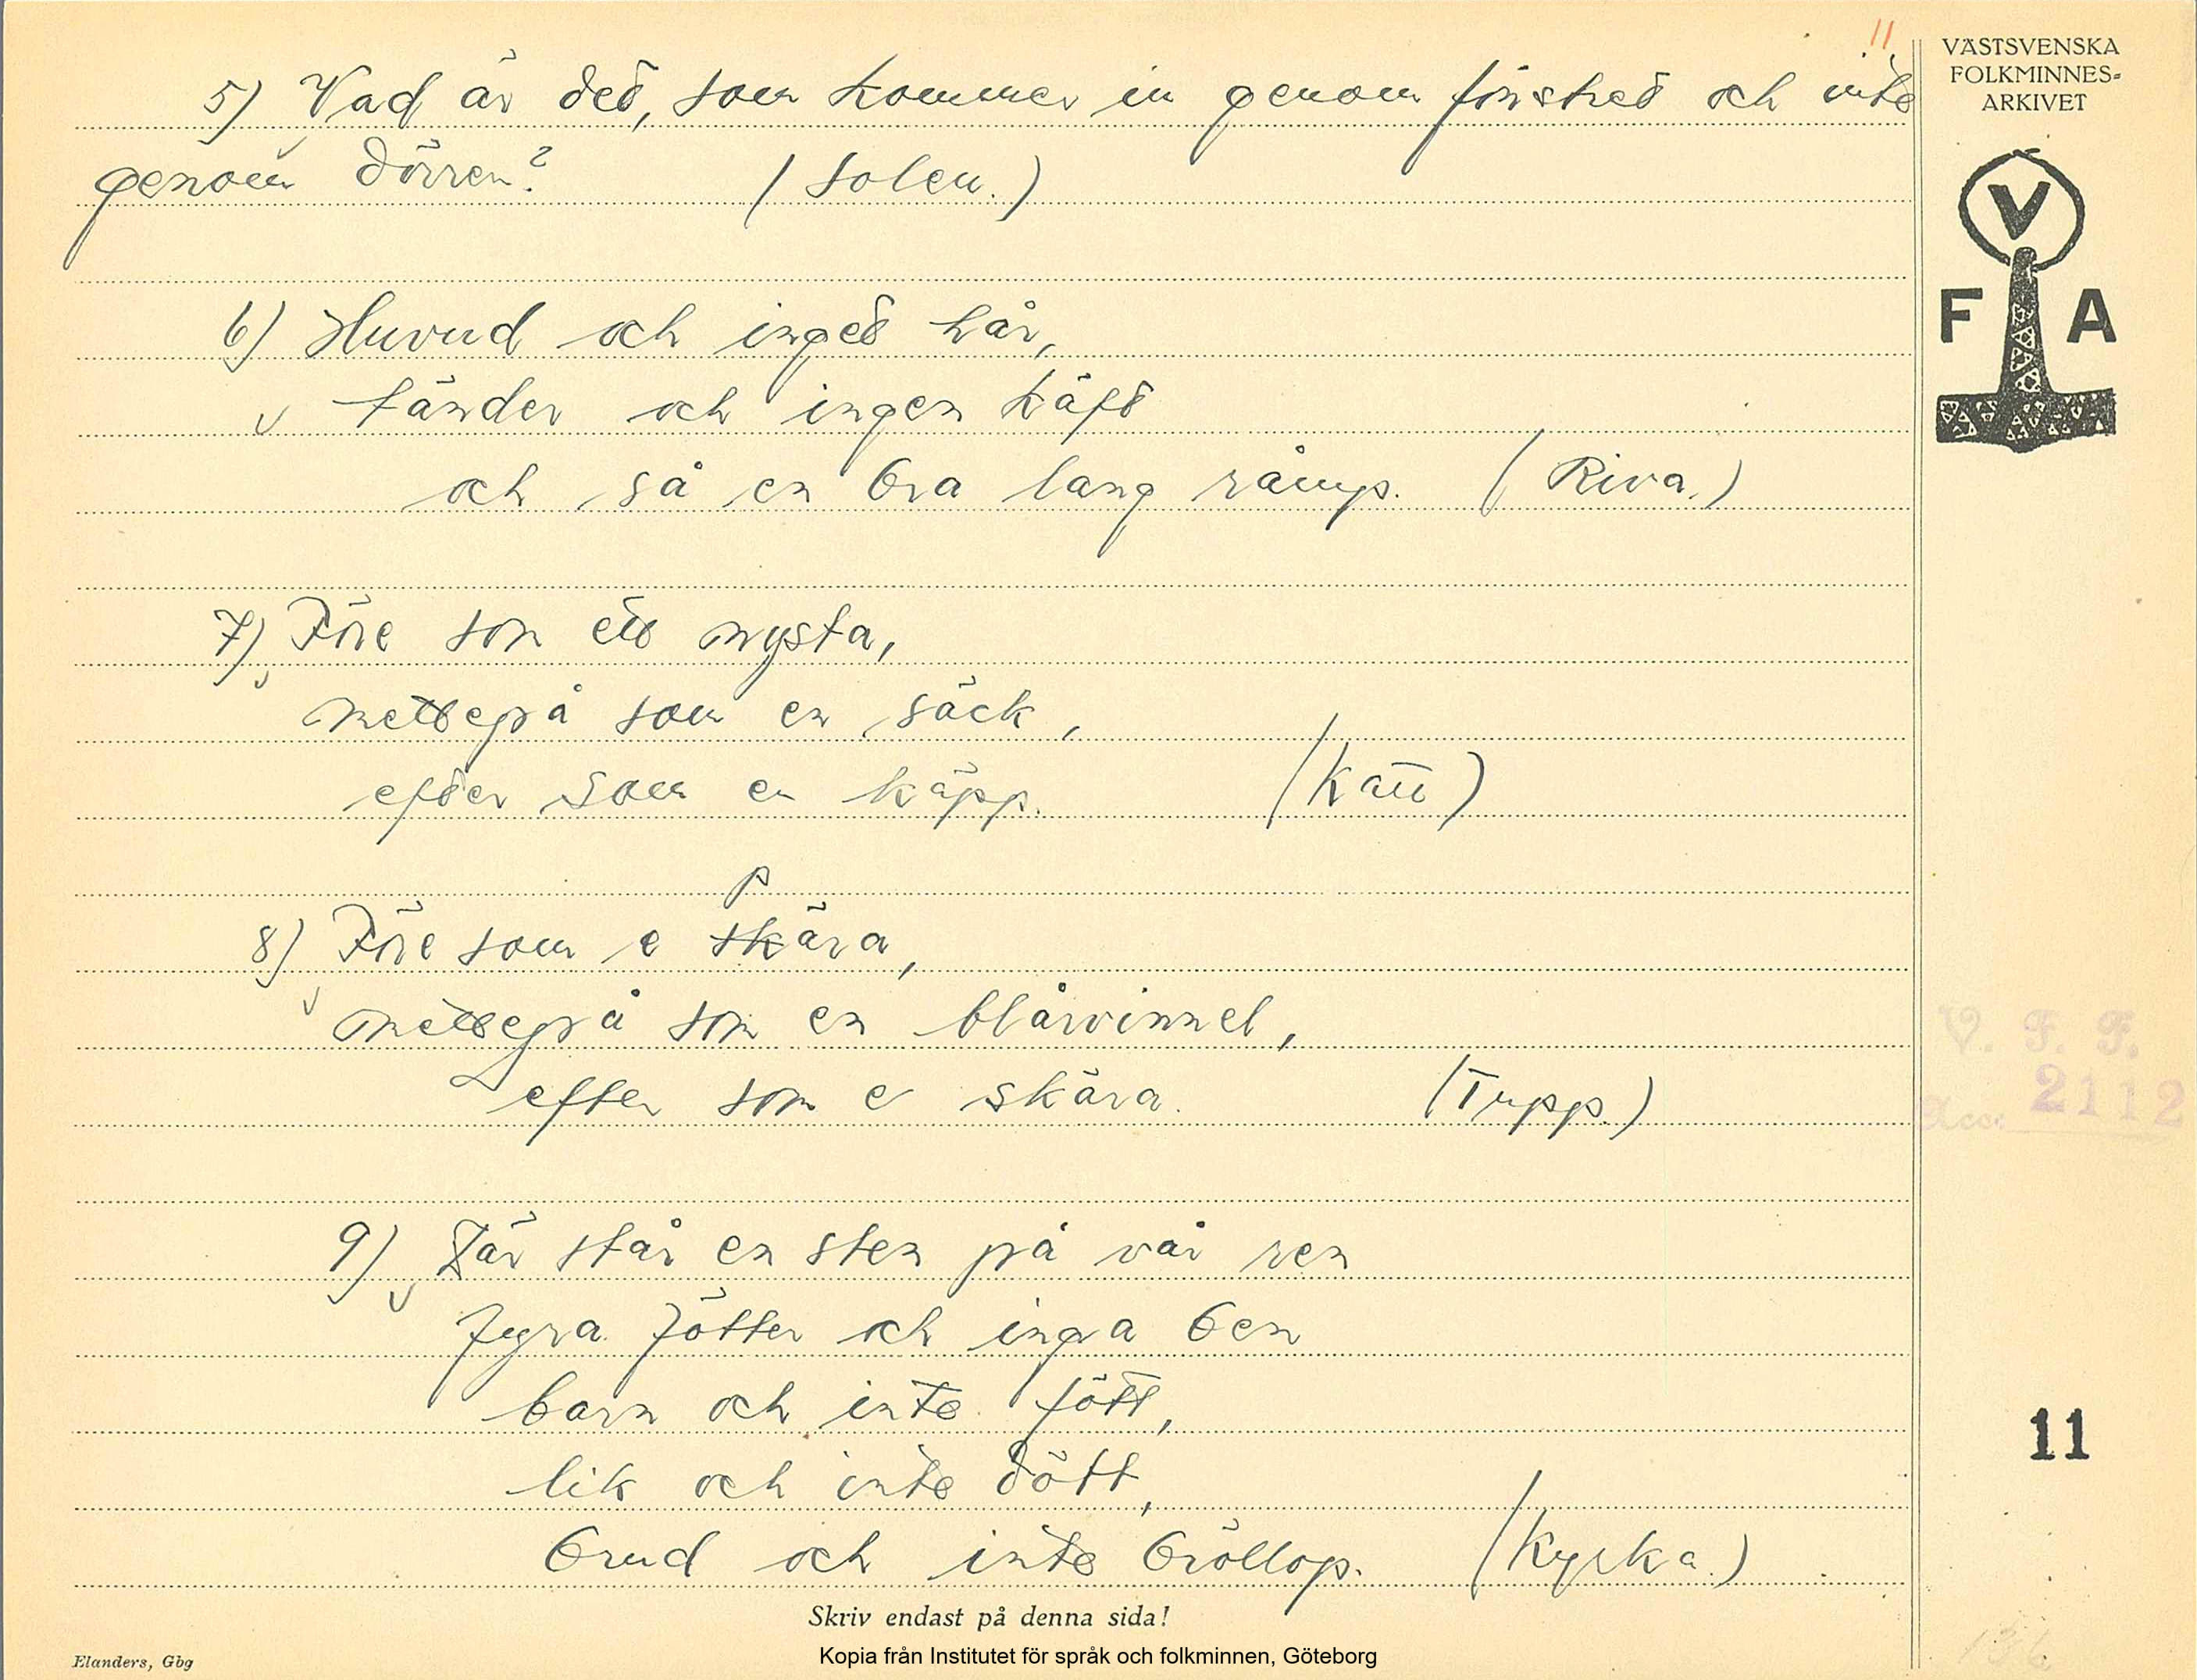 11
VÄSTSVENSKA
FOLKMINNES-
ARKIVET
V
F A
5) Vad är det, som kommer in genom fönstret och inte
genom dörren? (Solen.)
6) Huvud och inget hår,
tänder och ingen käft
och så en bra lang rämp. (Riva.)
7) Före som ett nysta,
mettepå som en säck,
efter som en käpp. (Katt)
p
8) Före som e skära,
mettepå som en blårvinnel,
efter som e skära. (Tupp.)
9) Där står en sten på vår ren
fyra fötter och inga ben
barn och inte fött,
lik och inte dött,
brud och inte bröllop. (Kyrka.)
V. F. F.
Acc: 2112
11
Skriv endast på denna sida!
Kopia från Institutet för språk och folkminnen, Göteborg
Elanders, Gbg